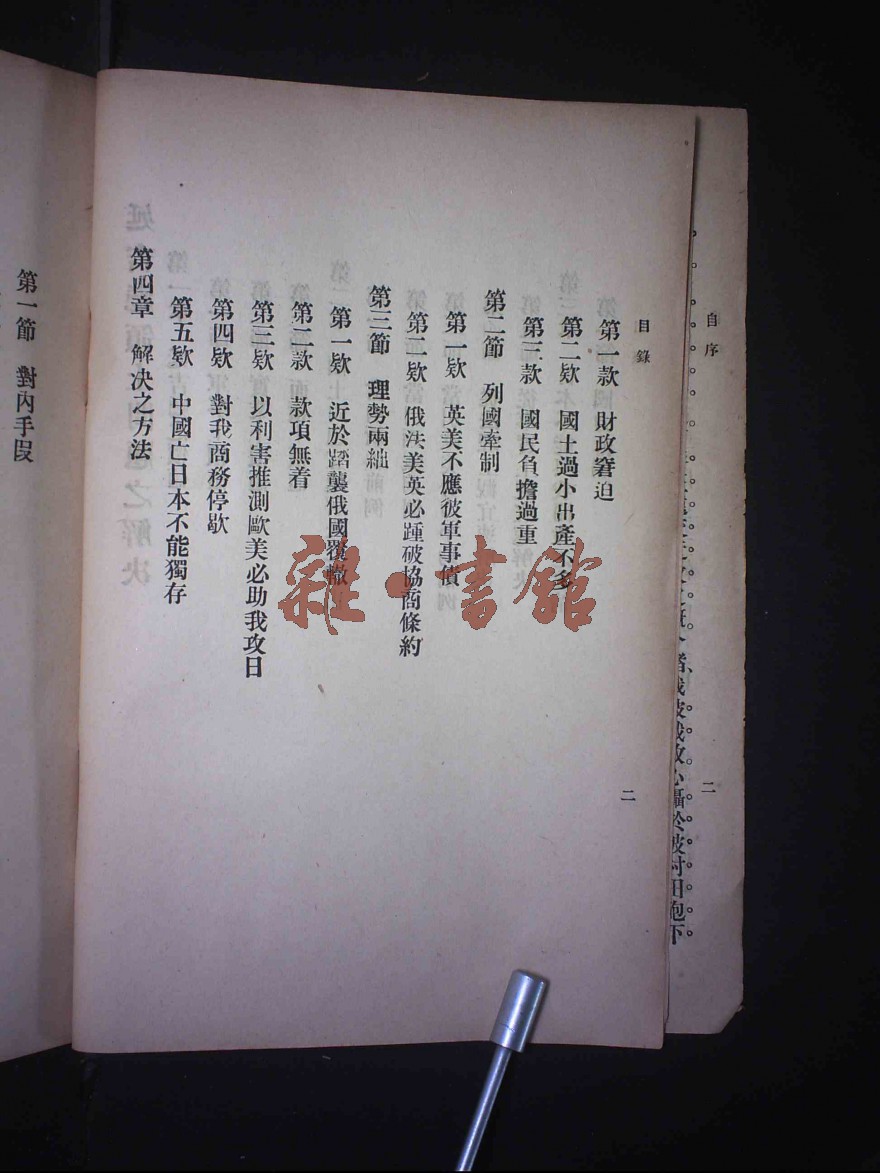 自序
二
目錄
二
第一款 財政窘迫
第二欵 國土過小出產不多
第三款 國民負擔過重
第二節 列國牽制
第一欵 英美不應彼軍事債
第二欵 俄法美英必踵破協商條約
第三節 理勢兩絀
第一欵 近於蹈襲俄國覆轍
第二款 款項無着
第三欵 以利害推測歐美必助我攻日
第四欵 對我商務停歇
第五欵 中國亡日本不能獨存
第四章 解决之方法
第一節 對內手段
雜書館